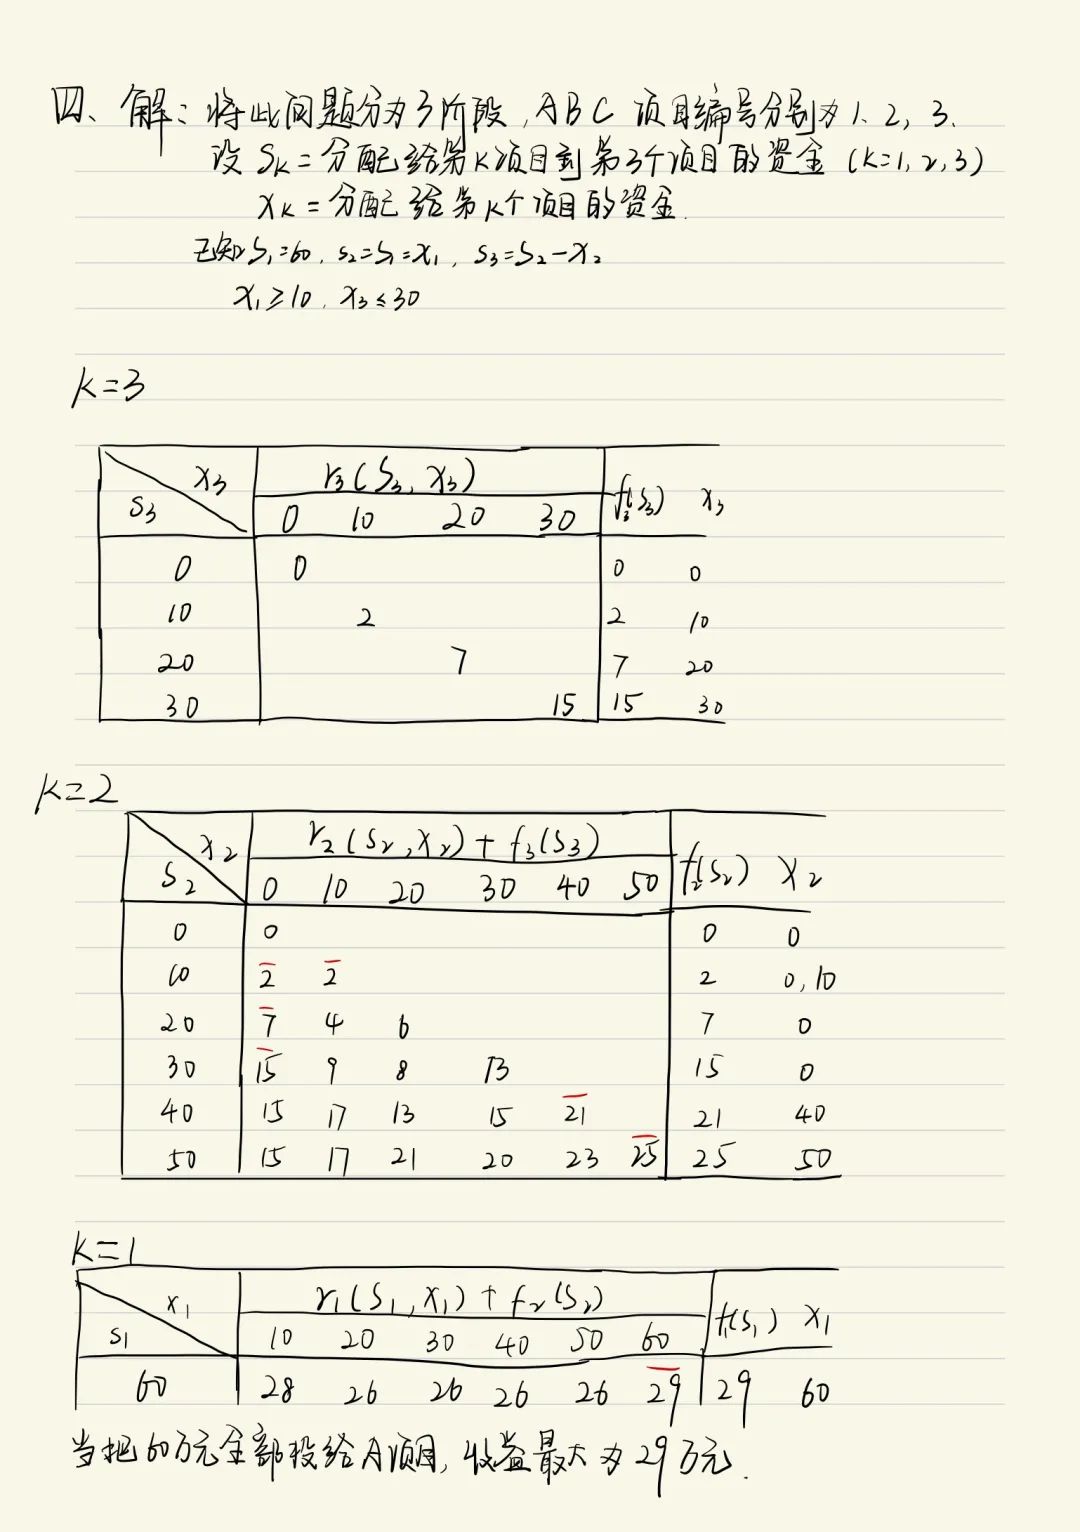 四、解：将此问题分为3阶段，ABC 项目编号分别为1、2，3、
设 Sk = 分配给第K项目到第3个项目的资金 (k=1,2,3)
xk = 分配给第k个项目的资金.
已知S1=60, S2=S1=x1, S3=S2-x2
x1≥10, x3≤30
k=3
x3 r3(S3, x3)
S3 0 10 20 30 f3(S3) x3
0 0 0 0
10 2 2 10
20 7 7 20
30 15 15 30
k=2
x2 r2(S2,x2)+f3(S3)
S2 0 10 20 30 40 50 f2(S2) x2
0 0 0 0
10 2 2 2 0,10
20 7 4 6 7 0
30 15 9 8 13 15 0
40 15 17 13 15 21 21 40
50 15 17 21 20 23 25 25 50
k=1
x1 r1(S1,x1)+f2(S2)
S1 10 20 30 40 50 60 f1(S1) x1
60 28 26 26 26 26 29 29 60
当把60万元全部投给A项目，收益最大为29万元.